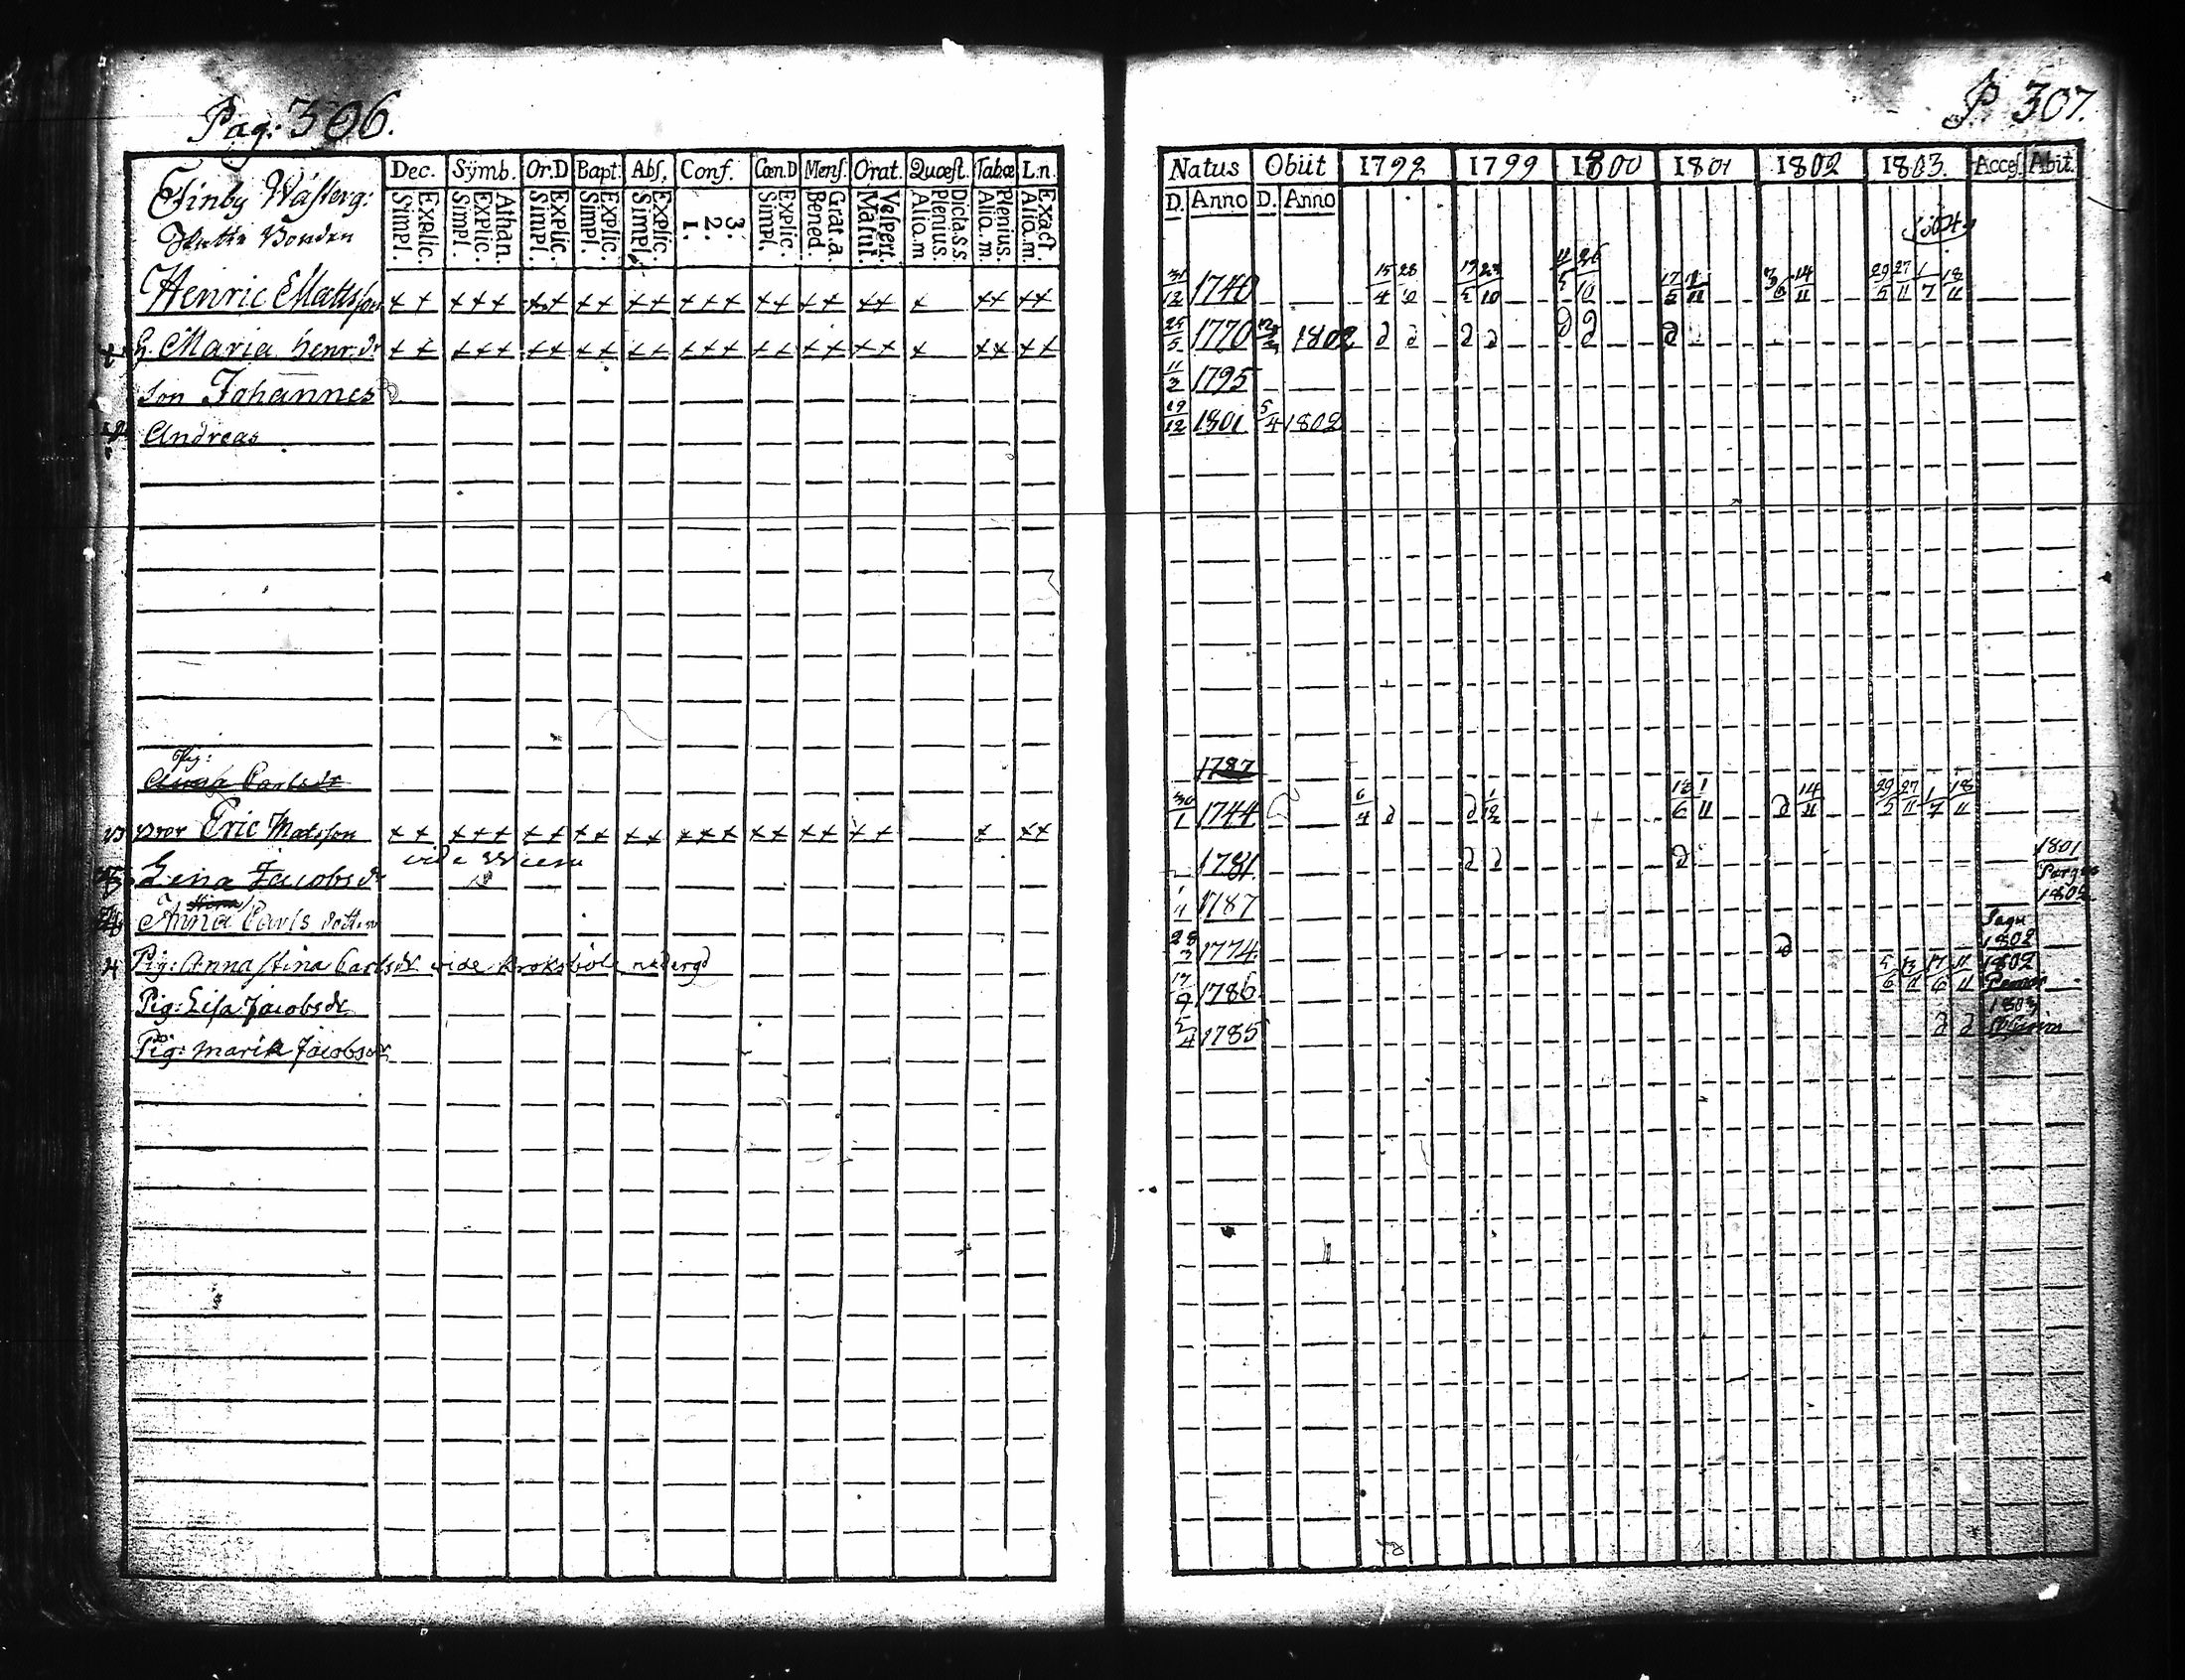 Pag: 306.
Dec. Sÿmb. Or.D Bapt. Abſ. Conf. Cœn.D Menſ. Orat. Quæſt. Tabæ L.n.
Finby Wäſterg:
Bonden
Simpl. Explic. Simpl. Explic. Athan. Simpl. Explic. Simpl. Explic. Simpl. Explic. 1. 2. 3. Simpl. Explic. Bened. Grat.a. Matut. Veſpert. Alio.m Plenius. Dicla.S.S. Alio.m. Plenius. Alio.m. Exact.
Henric Mattsſon + + + + + + + + + + + + + + + + + + + + + + + +
H. Maria Henr.dr + + + + + + + + + + + + + + + + + + + + + + + +
Son Johannes
Andreas
Pig:
Anna Carlsdr
Bror Eric Matsſon + + + + + + + + + + + + + + + + + + + + + + +
Lena Jacobsdr
Anna Carls dotter
Pig: Anna Stina Carlsdr vide Kroksböle nedergd
Pig: Liſa Jacobsdr
Pig: Maria Jacobsdr
P. 307.
Natus Obiit 1798 1799 1800 1801 1802 1803. Acceſ. Abit.
D. Anno D. Anno
31/12 1740 15/4 28/10 19/5 23/10 4/5 26/10 17/5 1/11 14/11 29/5 27/11 1/7 18/11
25/5 1770 1802 d d d d d d d
11/3 1795
19/12 1801 5/4 1802
1787
30/1 1744 6/4 d d 1/12 1/11 d 14/11 29/5 27/11 1/7 18/11
1781 d d d 1801
Pargas
1/11 1787 1802
Sagu
28/3 1774 d 1802
17/9 1786 5/6 13/11 17/6 11/11 1802
Pemar
5/4 1785 d d 1803